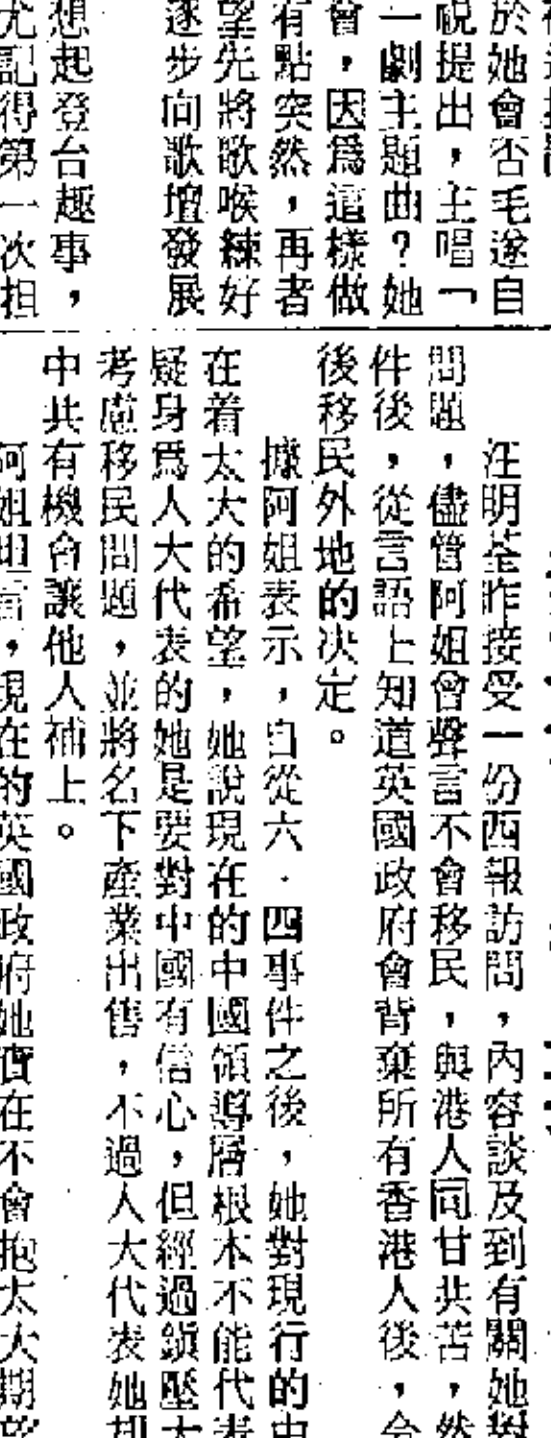 於她會否毛遂自
說提出，主唱「
一劇主題曲？她
會，因爲這樣做
有點突然，再者
望先將歌喉練好
逐步向歌壇發展
想起登台趣事，
尤記得第一次担
汪明荃昨接受一份西報訪問，內容談及到有關她對
問題，儘管阿姐曾聲言不會移民，與港人同甘共苦，然
件後，從言語上知道英國政府會背棄所有香港人後，令
後移民外地的決定。
據阿姐表示，自從六·四事件之後，她對現行的中
在着太大的希望，她說現在的中國領導層根本不能代表
疑身爲人大代表的她是要對中國有信心，但經過鎮壓大
考慮移民問題，並將名下產業出售，不過人大代表她却
中共有機會讓他人補上。
阿姐坦言，現在的英國政府她實在不會抱太大期望